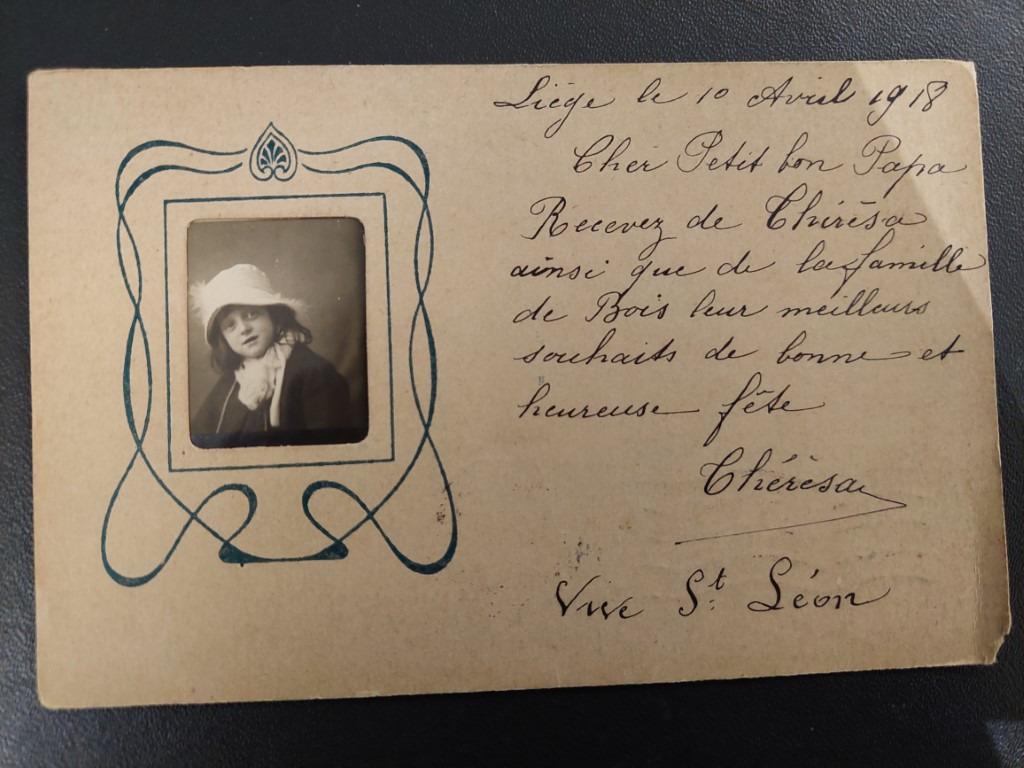 Liége le 10 Avril 1918
Cher Petit bon Papa
Recevez de Thérèsa
ainsi que de la famille
de Bois leur meilleurs
souhaits de bonne et
heureuse fête
Thérèsa
Vive St. Léon